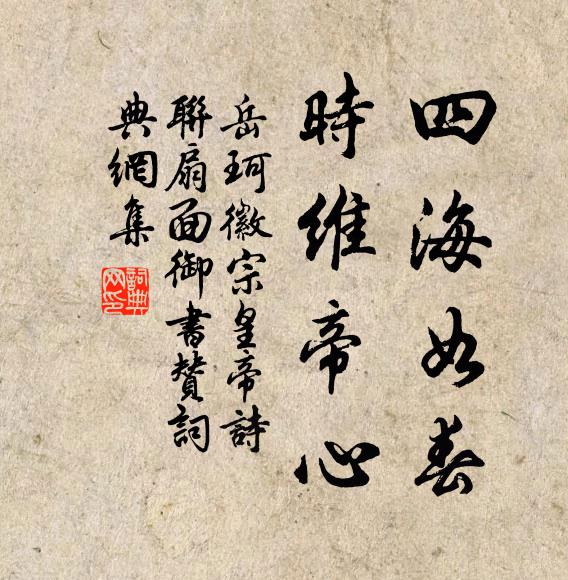 四海如春
時維帝心
岳珂徽宗皇帝詩
聯扇面御書贊詞
典網集
詞典
网印